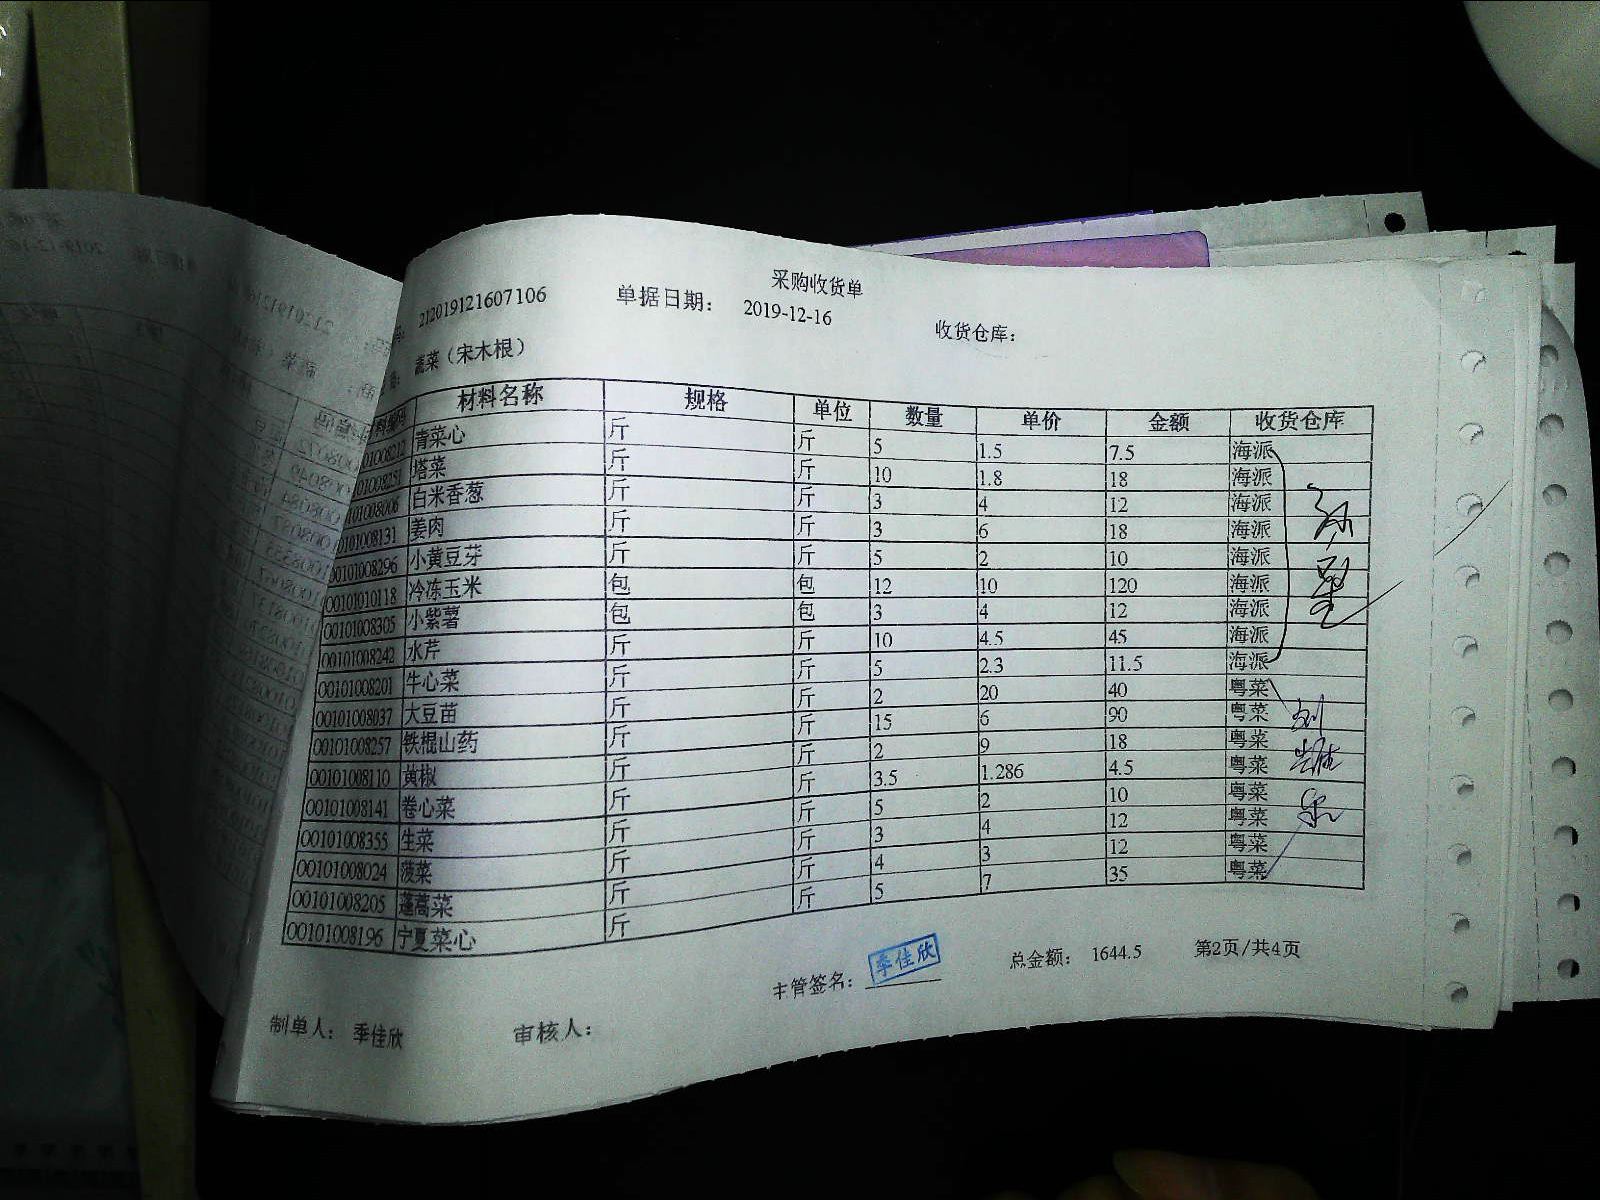 采购收货单
212019121607106 单据日期: 2019-12-16 收货仓库:
蔬菜（宋木根）
材料名称 规格 单位 数量 单价 金额 收货仓库
01008212 青菜心 斤 斤 5 1.5 7.5 海派
01008251 塔菜 斤 斤 10 1.8 18 海派
101008006 白米香葱 斤 斤 3 4 12 海派
0101008131 姜肉 斤 斤 3 6 18 海派
00101008296 小黄豆芽 斤 斤 5 2 10 海派
00101010118 冷冻玉米 包 包 12 10 120 海派
00101008305 小紫薯 包 包 3 4 12 海派
00101008242 水芹 斤 斤 10 4.5 45 海派
00101008201 牛心菜 斤 斤 5 2.3 11.5 海派
00101008037 大豆苗 斤 斤 2 20 40 粤菜
00101008257 铁棍山药 斤 斤 15 6 90 粤菜
00101008110 黄椒 斤 斤 2 9 18 粤菜
00101008141 卷心菜 斤 斤 3.5 1.286 4.5 粤菜
00101008355 生菜 斤 斤 5 2 10 粤菜
00101008024 菠菜 斤 斤 3 4 12 粤菜
00101008205 蓬蒿菜 斤 斤 4 3 12 粤菜
00101008196 宁夏菜心 斤 斤 5 7 35 粤菜
主管签名: 季佳欣 总金额: 1644.5 第2页/共4页
制单人: 季佳欣 审核人: